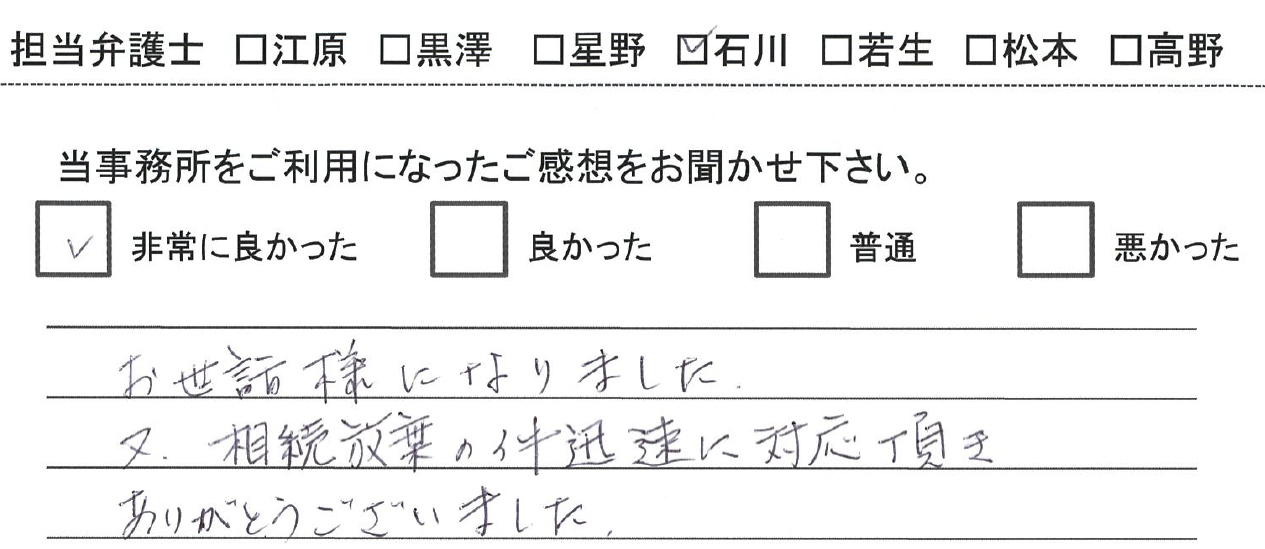 担当弁護士 □江原 □黒澤 □星野 ☑石川 □若生 □松本 □高野
当事務所をご利用になったご感想をお聞かせ下さい。
☑ 非常に良かった □ 良かった □ 普通 □ 悪かった
お世話様になりました.
又. 相続放棄の件迅速に対応頂き
ありがとうございました.